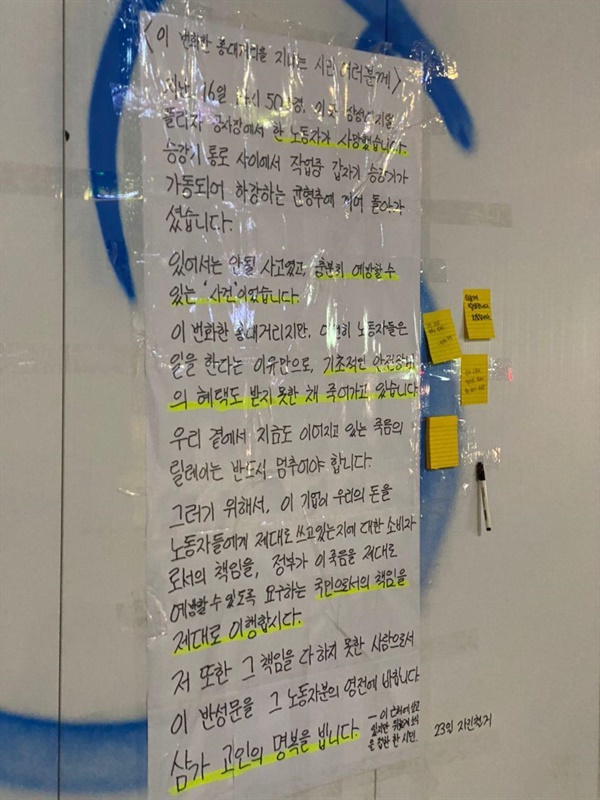 <이 번화한 홍대거리를 지나는 시민 여러분께>
지난 16일 다시 50분경, 이곳
플라자 공사장에서 한 노동자가 사망했습니다.
승강기 통로 사이에서 작업중 갑자기 승강기가
가동되어 하강하는 균형추에 끼여 돌아가
셨습니다.
있어서는 안될 사고였고, 충분히 예방할 수
있는 '사건'이었습니다.
이 번화한 홍대거리지만, 여전히 노동자들은
일을 한다는 이유만으로, 기초적인 안전장비
의 혜택도 받지 못한 채 죽어가고 있습니다
우리 곁에서 지금도 이어지고 있는 죽음의
릴레이는 반드시 멈추어야 합니다.
그러기 위해서, 이 기업이 우리의 돈을
노동자들에게 제대로 쓰고있는지에 대한 소비자
로서의 책임을, 정부가 이 죽음을 제대로
예방할 수 있도록 요구하는 국민으로서의 책임을
제대로 이행합시다.
저 또한 그 책임을 다 하지 못한 사람으로서
이 반성문을 그 노동자분의 영전에 바칩니다
삼가 고인의 명복을 빕니다.
- 이 근처에 살고
있지만 뒤늦게 소식
을 접한 한 시민.
23일 자진철거